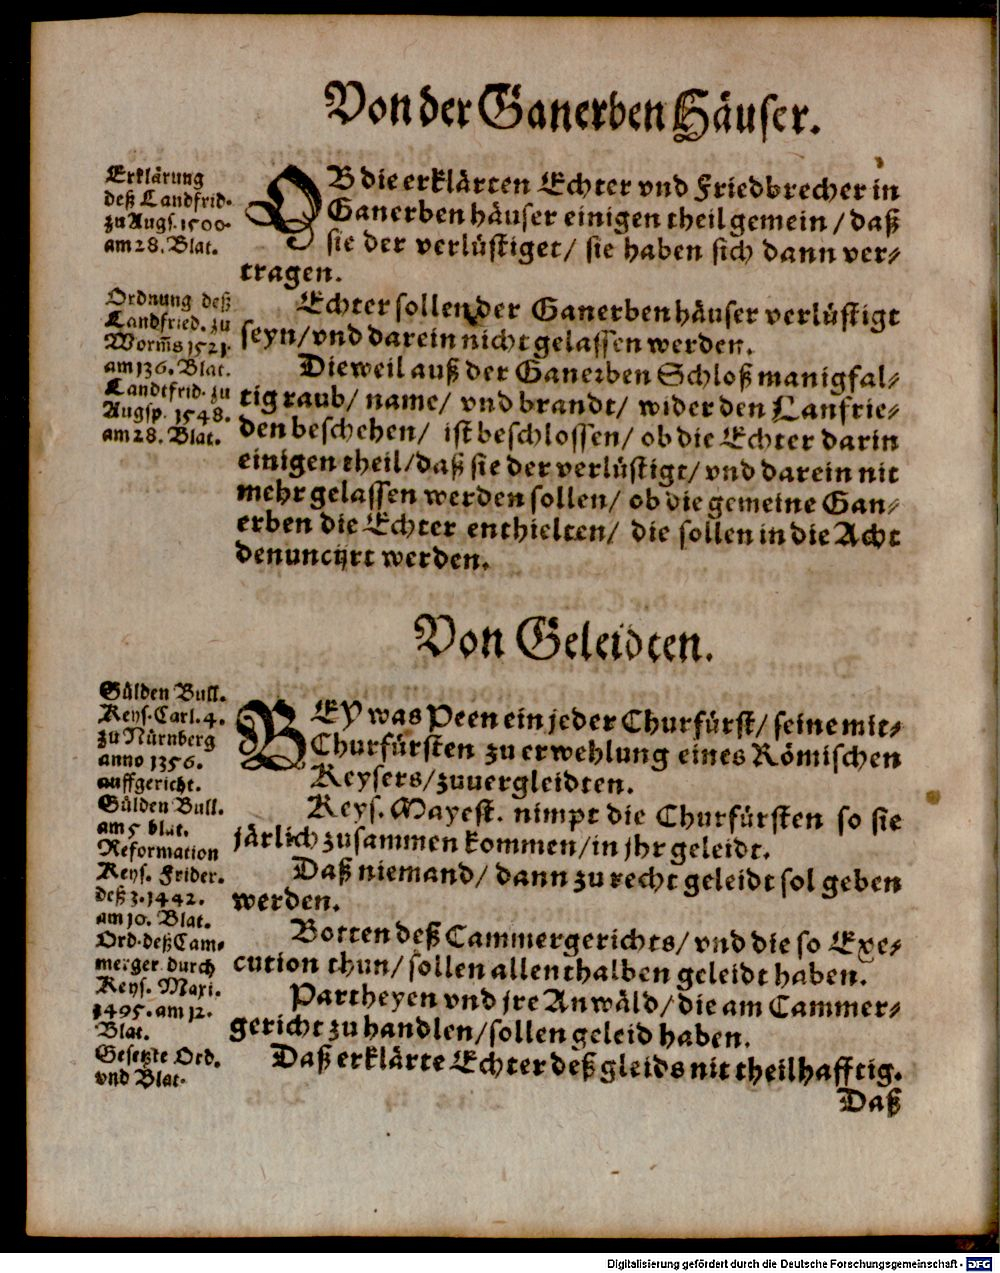 Von der Ganerben Häuser.
Erklärung
deß Landfrid.
zu Augs. 1500.
am 28. Blat.
OB die erklärten Echter vnd Friedbrecher in
Ganerben häuser einigen theil gemein / daß
sie der verlüstiget / sie haben sich dann ver⸗
tragen.
Ordnung deß
Landfried. zu
Worm̃s 1521.
am 136. Blat.
Landtfrid. zu
Augsp. 1548.
am 28. Blat.
Echter sollen der Ganerben häuser verlüstigt
seyn / vnd darein nicht gelassen werden.
Dieweil auß der Ganerben Schloß manigfal⸗
tig raub / name / vnd brandt / wider den Lanfrie⸗
den beschehen / ist beschlossen / ob die Echter darin
einigen theil / daß sie der verlüstigt / vnd darein nit
mehr gelassen werden sollen / ob die gemeine Gan⸗
erben die Echter enthielten / die sollen in die Acht
denuncijrt werden.
Von Geleidten.
Gülden Bull.
Keys. Carl. 4.
zu Nürnberg
anno 1356.
auffgericht.
Gülden Bull.
am 5 blat.
Reformation
Keys. Frider.
deß 3. 1442.
am 10. Blat.
Ord. deß Cam⸗
merger durch
Keys. Maxi.
1495. am 12.
Blat.
Gesetzte Ord.
vnd Blat.
BEy was Peen ein jeder Churfürst / seine mit⸗
Churfürsten zu erwehlung eines Römischen
Keysers / zuuergleidten.
Keys. Mayest. nimpt die Churfürsten so sie
järlich zusammen kommen / in jhr geleidt.
Daß niemand / dann zu recht geleidt sol geben
werden.
Botten deß Cammergerichts / vnd die so Exe⸗
cution thun / sollen allenthalben geleidt haben.
Partheyen vnd jre Anwäld / die am Cammer⸗
gericht zu handlen / sollen geleid haben.
Daß erklärte Echter deß gleids nit theilhafftig.
Daß
Digitalisierung gefördert durch die Deutsche Forschungsgemeinschaft - DFG